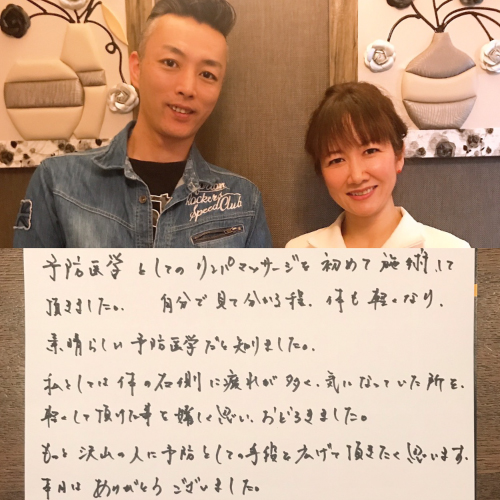 Rockers
Speed Club
予防医学としてのリンパマッサージを初めて施術して
頂きました。 自分で見て分かる程、体も軽くなり、
素晴らしい予防医学だと知りました。
私としては体の右側に疲れが多く、気になっていた所を、
軽くして頂けた事を嬉しく思い、おどろきました。
もっと沢山の人に予防としての手段を広げて頂きたく思います。
本日はありがとうございました。